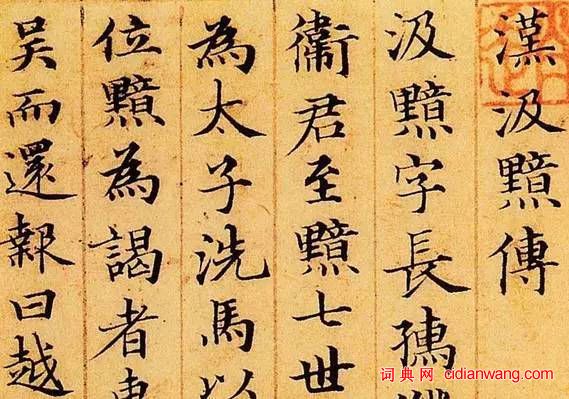 漢汲黯傳
汲黯字長孺
衛君至黯七世
為太子洗馬以
位黯為謁者東
吳而還報曰越
词典网 cidianwang.com